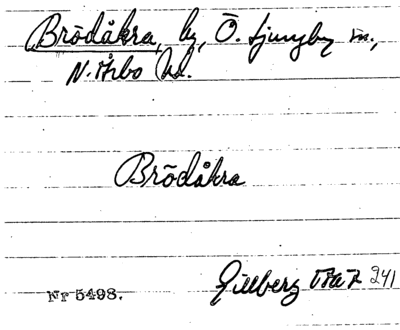 Brödåkra, by, Ö. Ljungby sn.,
N. Åsbo hd.
Brödåkra
Gillberg 241
Nr 5498.